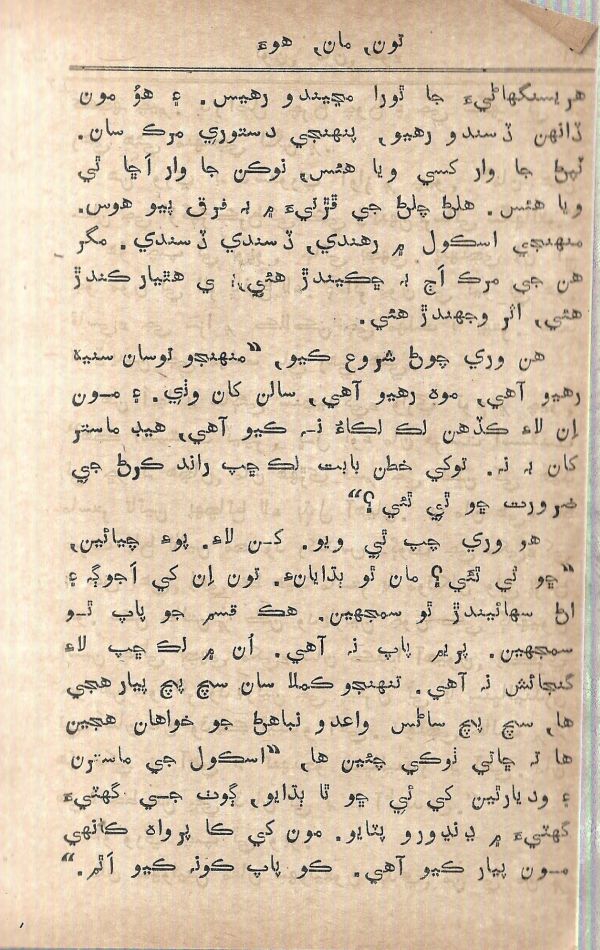 تون, مان, هوءَ
هريسنگهاڻيءَ جا ٿورا مڃيندو رهيس. ۽ هؤ مون
ڏانهن ڏسندو رهيو, پنهنجي دستوري مرڪ سان.
ٽهڻ جا وار کسي ويا هئس, نوڪن جا وار اَڇا ٿي
ويا هئس. هلڻ چلڻ جي ڦڙتيءَ ۾ بہ فرق پيو هوس.
منهنجي اسڪول ۾ رهندي, ڏسندي ڏسندي. مگر
هن جي مرڪ اَڄ بہ ڇڪيندڙ هئي, ي هٿيار ڪندڙ
هئي, اثر وجهندڙ هئي.
هن وري چوڻ شروع ڪيو, “منهنجو توسان سنيهَ
رهيو آهي, موهہ رهيو آهي, سالن کان وٺي. ۽ مـون
اِن لاءِ ڪڏهن لڪ لڪاءُ نـہ ڪيو آهي, هيڊ ماستر
کان بہ نہ. توکي خطن بابت لڪ ڇپ راند ڪرڻ جي
ضرورت ڇو ٿي ٿئي؟“
هو وري چپ ٿي ويو. کـن لاءِ. پوءِ چيائين,
“ڇو ٿي ٿئي؟ مان ٿو ٻڌايانءِ. تون اِن کي اَجوڳہ ۽
اڻ سهائيندڙ ٿو سمجهين. هڪ قسم جو پاپ ٿـو
سمجهين. پريم پاپ نہ آهي. اُن ۾ لڪ ڇپ لاءِ
گنجائش نہ آهي. تنهنجو ڪملا سان سچ پچ پيار هجي
ها, سچ پچ ساڻس واعدو نباهڻ جو خواهان هجين
ها تہ ڇاتي ٺوڪي چئين ها, “اسڪول جي ماسترن
۽ وديارٿين کي ئي ڇو ٿا ٻڌايو, ڳوٺ جـي گهٽيءَ
گهٽيءَ ۾ ڍنڍورو پٽايو. مون کي ڪا پرواهہ ڪانهي
مـون پيار ڪيو آهي. ڪو پاپ ڪونہ ڪيو اَٿم.“